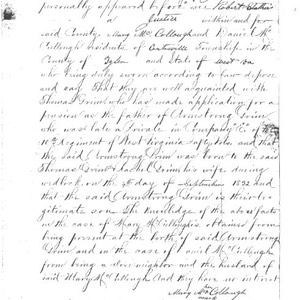 personally appeared before me Robert
a Justice within and for
said County Mary McCollough and Daniel Mc
Cullough residents of Centreville Township in the
County of Tyler and State of West Va
who being duly sworn according to law depose
and say That they are well acquainted with
Thomas Grim who has made application for a
pension as the father of Armstrong Grim
who was late a Private in Company "E" of the
10th Regiment of West Virginia and that
the said Armstrong Grim was born to the said
Thomas Grim & Rachel Grim his wife during
wedlock, on the day of September 1822 and
that the said Armstrong Grim is their le
gitimate son. The knowledge of the above facts
in the case of Mary McCullough is obtained from
being present at the birth of said Armstrong
Grim and in the case of Daniel McCullough
from being a near neighbor and the husband of
said Mary McCullough. And they have no interest
Mary McCollough
mark